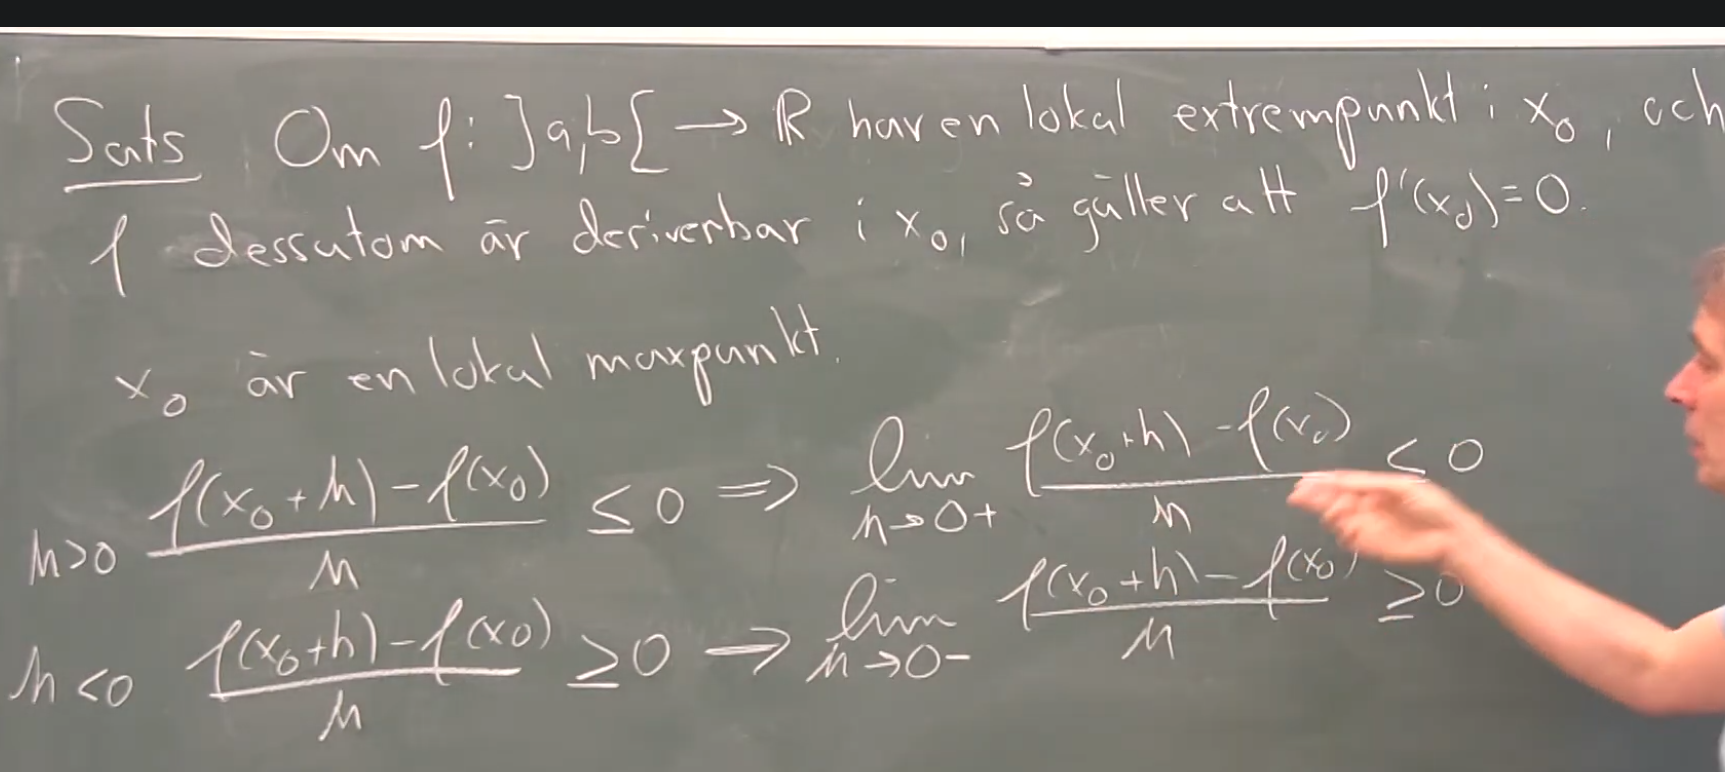 Sats Om f: ]a,b[ → ℝ har en lokal extrempunkt i x₀, och
f dessutom är deriverbar i x₀, så gäller att f'(x₀)=0.
x₀ är en lokal maxpunkt.
h>0 (f(x₀+h)-f(x₀))/h ≤ 0 ⇒ lim h→0+ (f(x₀+h)-f(x₀))/h ≤ 0
h<0 (f(x₀+h)-f(x₀))/h ≥ 0 → lim h→0- (f(x₀+h)-f(x₀))/h ≥ 0